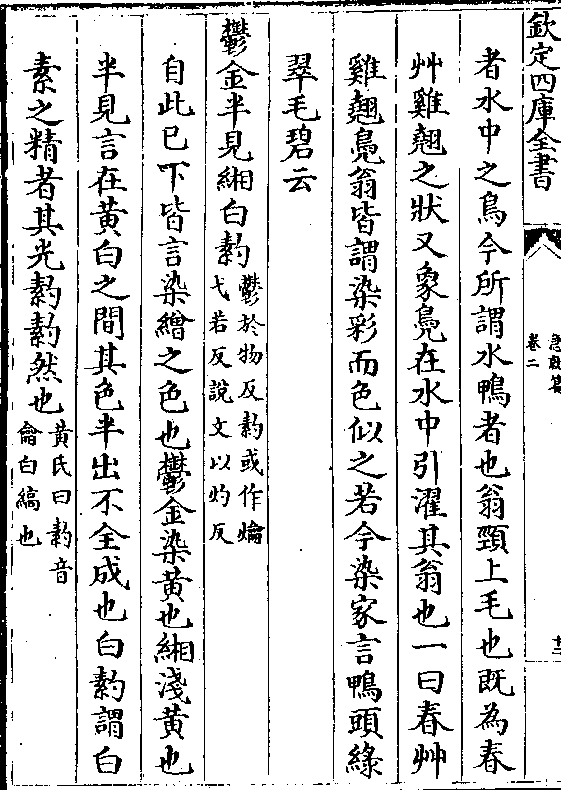 欽定四庫全書
急就篇
卷二
十二
者水中之鳥今所謂水鴨者也翁頸上毛也既為春
艸雞翹之狀又象鳧在水中引濯其翁也一曰春艸
雞翹鳧翁皆謂染彩而色似之若今染家言鴨頭綠
翠毛碧云
鬱金半見緗白䊠鬱於物反䊠或作爚
弋若反說文以灼反
自此已下皆言染繒之色也鬱金染黃也緗淺黃也
半見言在黃白之間其色半出不全成也白䊠謂白
素之精者其光䊠䊠然也黃氏曰䊠音
龠白縞也